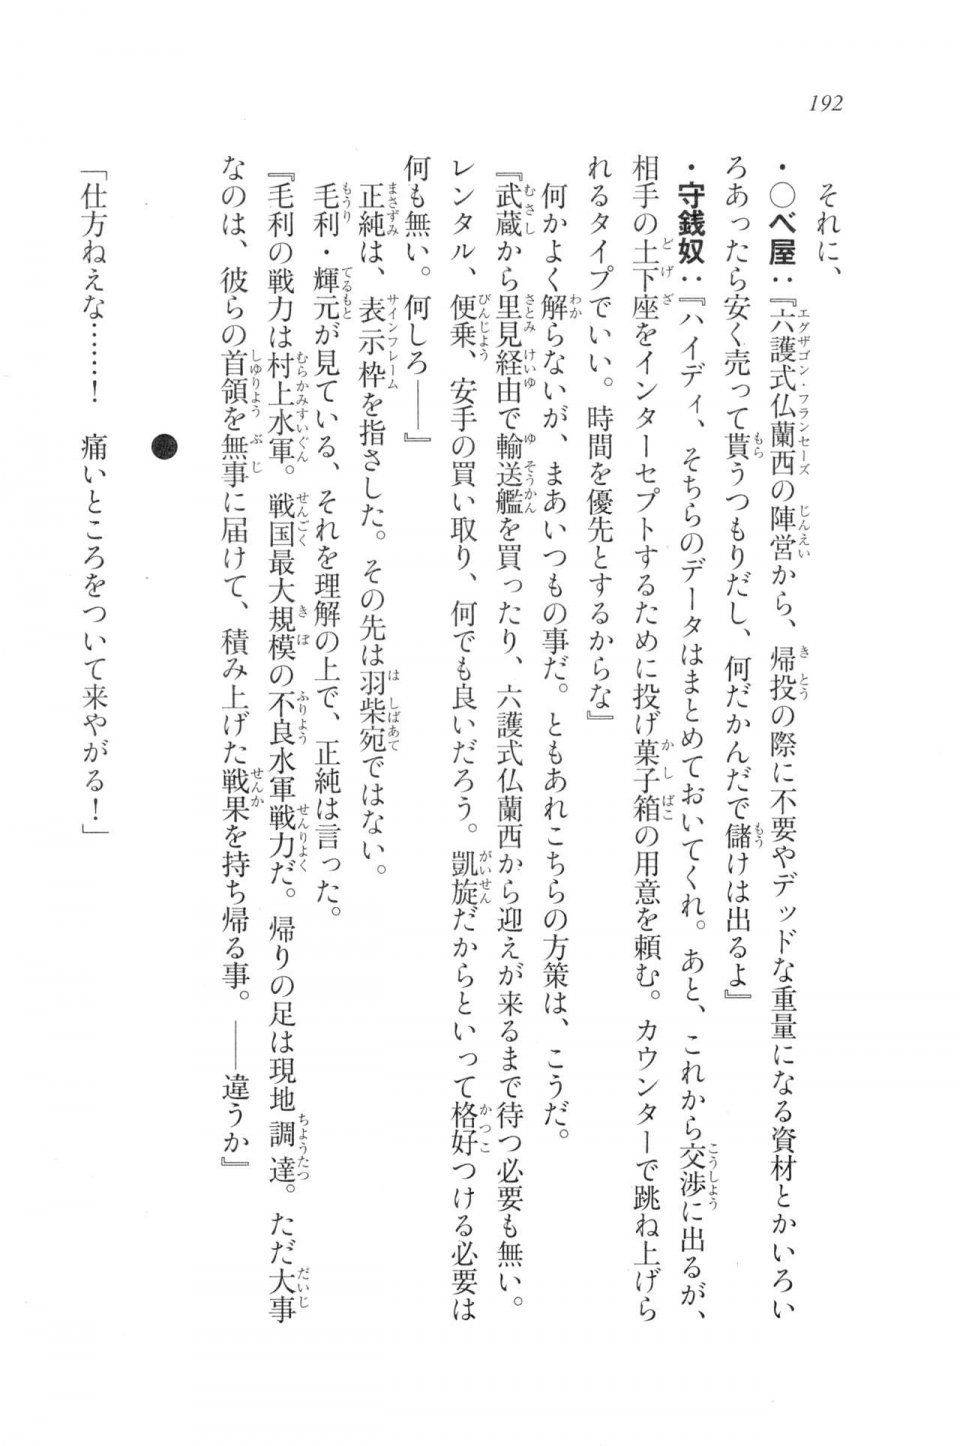 192
それに、
・○ベ屋：『六護式仏蘭西の陣営から、帰投の際に不要やデッドな重量になる資材とかいろい
ろあったら安く売って貰うつもりだし、何だかんだで儲けは出るよ』
・守銭奴：『ハイディ、そちらのデータはまとめておいてくれ。あと、これから交渉に出るが、
相手の土下座をインターセプトするために投げ菓子箱の用意を頼む。カウンターで跳ね上げら
れるタイプでいい。時間を優先とするからな』
何かよく解らないが、まあいつもの事だ。ともあれこちらの方策は、こうだ。
『武蔵から里見経由で輸送艦を買ったり、六護式仏蘭西から迎えが来るまで待つ必要も無い。
レンタル、便乗、安手の買い取り、何でも良いだろう。凱旋だからといって格好つける必要は
何も無い。何しろ――』
正純は、表示枠を指さした。その先は羽柴宛ではない。
毛利・輝元が見ている、それを理解の上で、正純は言った。
『毛利の戦力は村上水軍。戦国最大規模の不良水軍戦力だ。帰りの足は現地調達。ただ大事
なのは、彼らの首領を無事に届けて、積み上げた戦果を持ち帰る事。――違うか』
●
「仕方ねえな……！　痛いところをついて来やがる！」